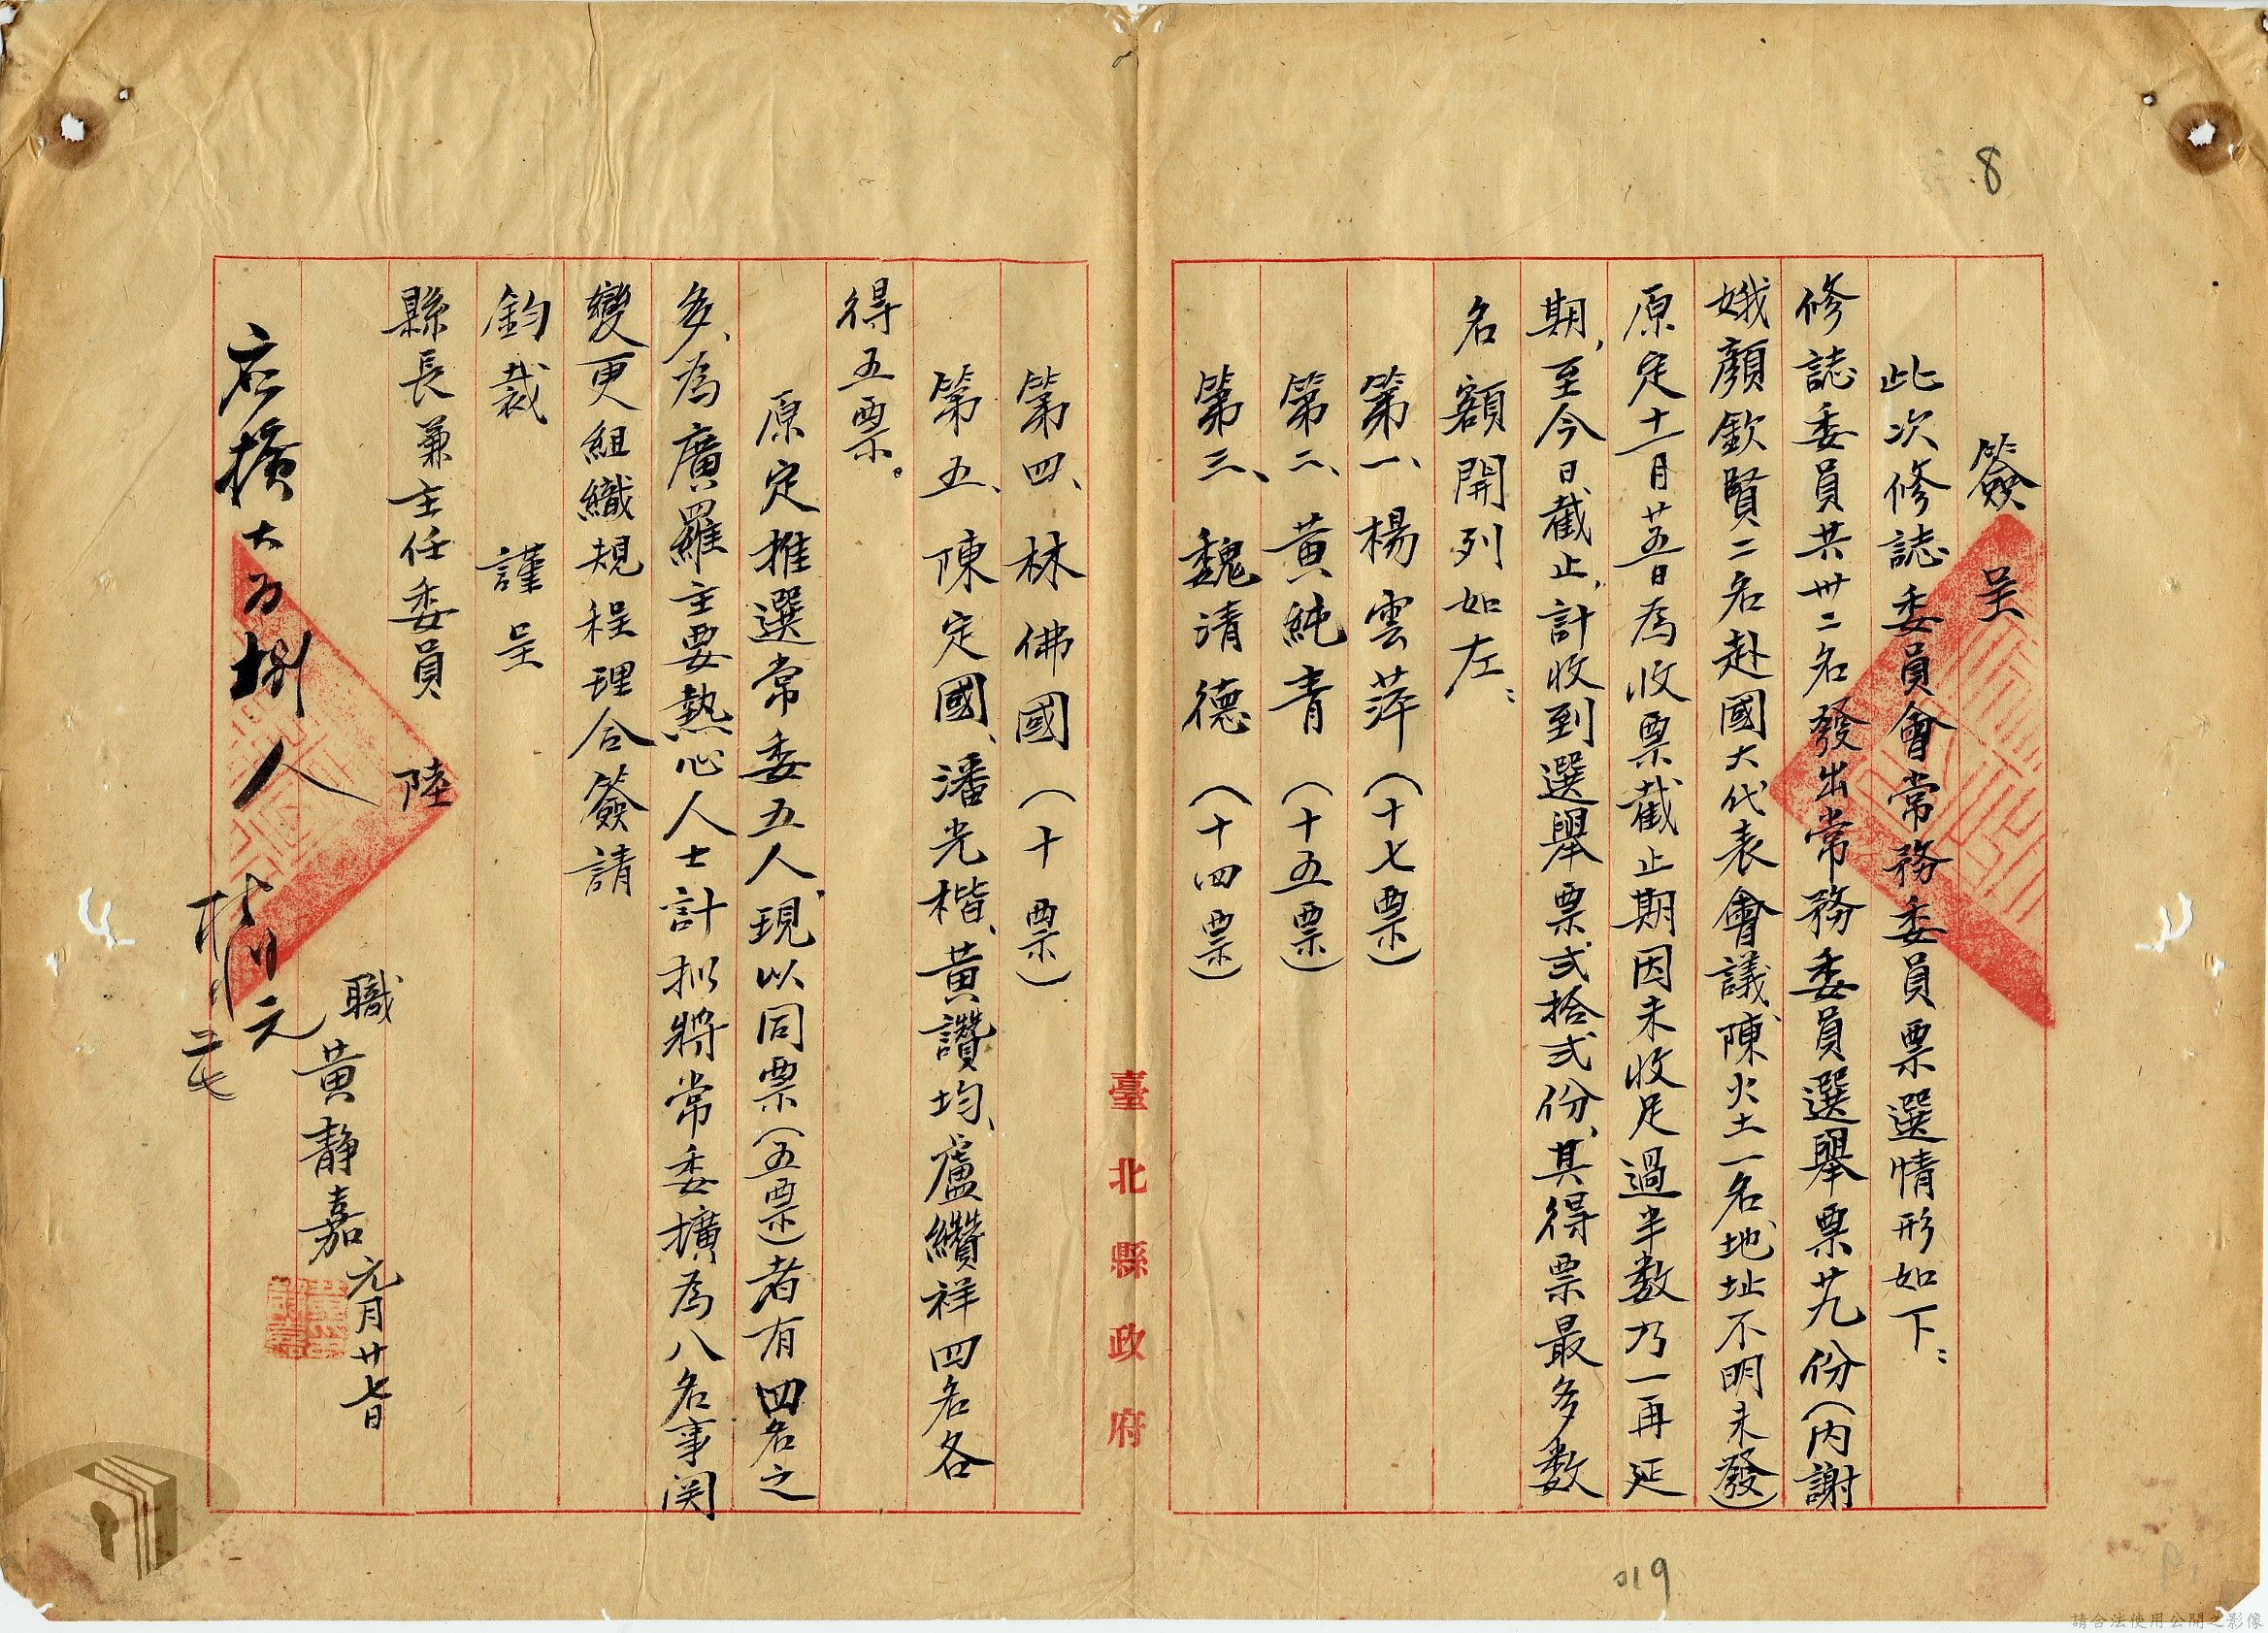 8
簽呈
此次修誌委員會常務委員票選情形如下：
修誌委員共卅二名發出常務委員選舉票廿九份（內謝
娥顏欽賢二名赴國大代表會議、陳火土一名地址不明未發）
原定十一月廿五日為收票截止期因未收足過半数乃一再延
期，至今日截止，計收到選舉票弍拾弍份、其得票最多数
名額開列如左：
第一、楊雲萍（十七票）
第二、黃純青（十五票）
第三、魏清德（十四票）
臺北縣政府
第四、林佛國（十票）
第五、陳定國、潘光楷、黃讚均、盧纘祥四名各
得五票。
原定推選常委五人，現以同票（五票）者有四名之
多、為廣羅主要熱心人士計拟將常委擴為八名事関
變更組織規程理合簽請
鈞裁　謹呈
縣長兼主任委員　陸
職　黃靜嘉　元月廿七日
捌人
019
請合法使用公開之影像